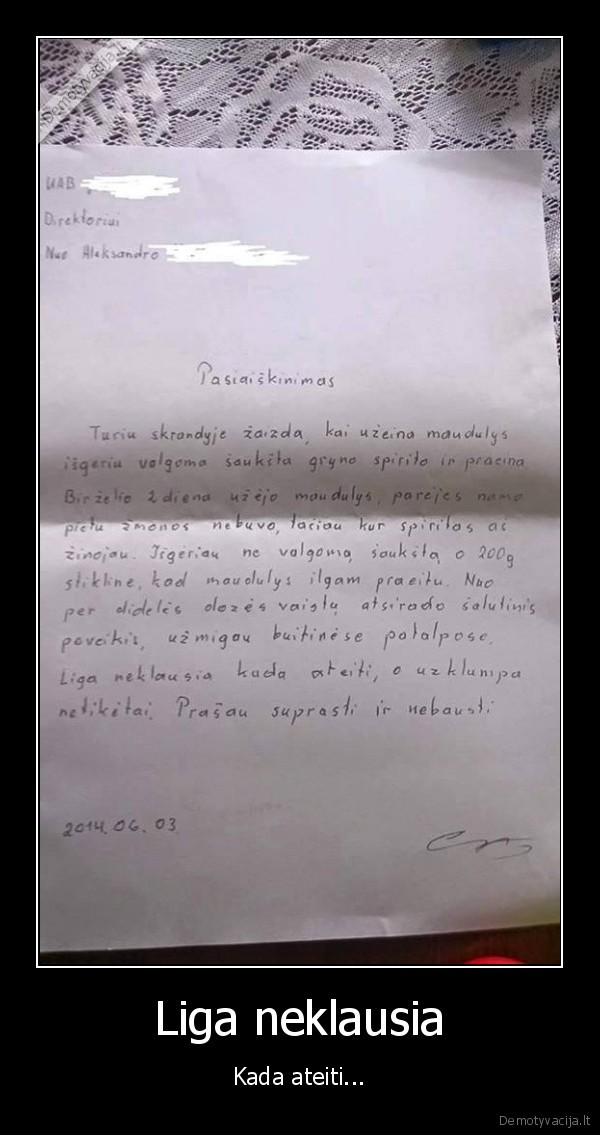 Demotyvacija.lt
UAB
Direktoriui
Nuo Aleksandro
Pasiaiškinimas
Turiu skrandyje žaizdą, kai užeina maudulys
išgeriu valgoma šaukšta gryno spirito ir praeina
Birželio 2 diena užėjo maudulys, parėjes namo
pietu žmonos nebuvo, tačiau kur spiritas aš
žinojau. Išgėriau ne valgomą šaukštą o 200g
stikline, kad maudulys ilgam praeitu. Nuo
per didelės dozės vaistų atsirado šalutinis
poveikis, užmigau buitinėse patalpose.
Liga neklausia kada ateiti, o užklumpa
netikėtai. Prašau suprasti ir nebausti
2014.06.03
Liga neklausia
Kada ateiti...
Demotyvacija.lt